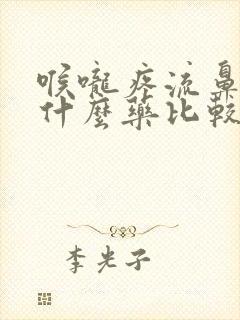 喉嚨疼流鼻
什麼藥比較
李光子